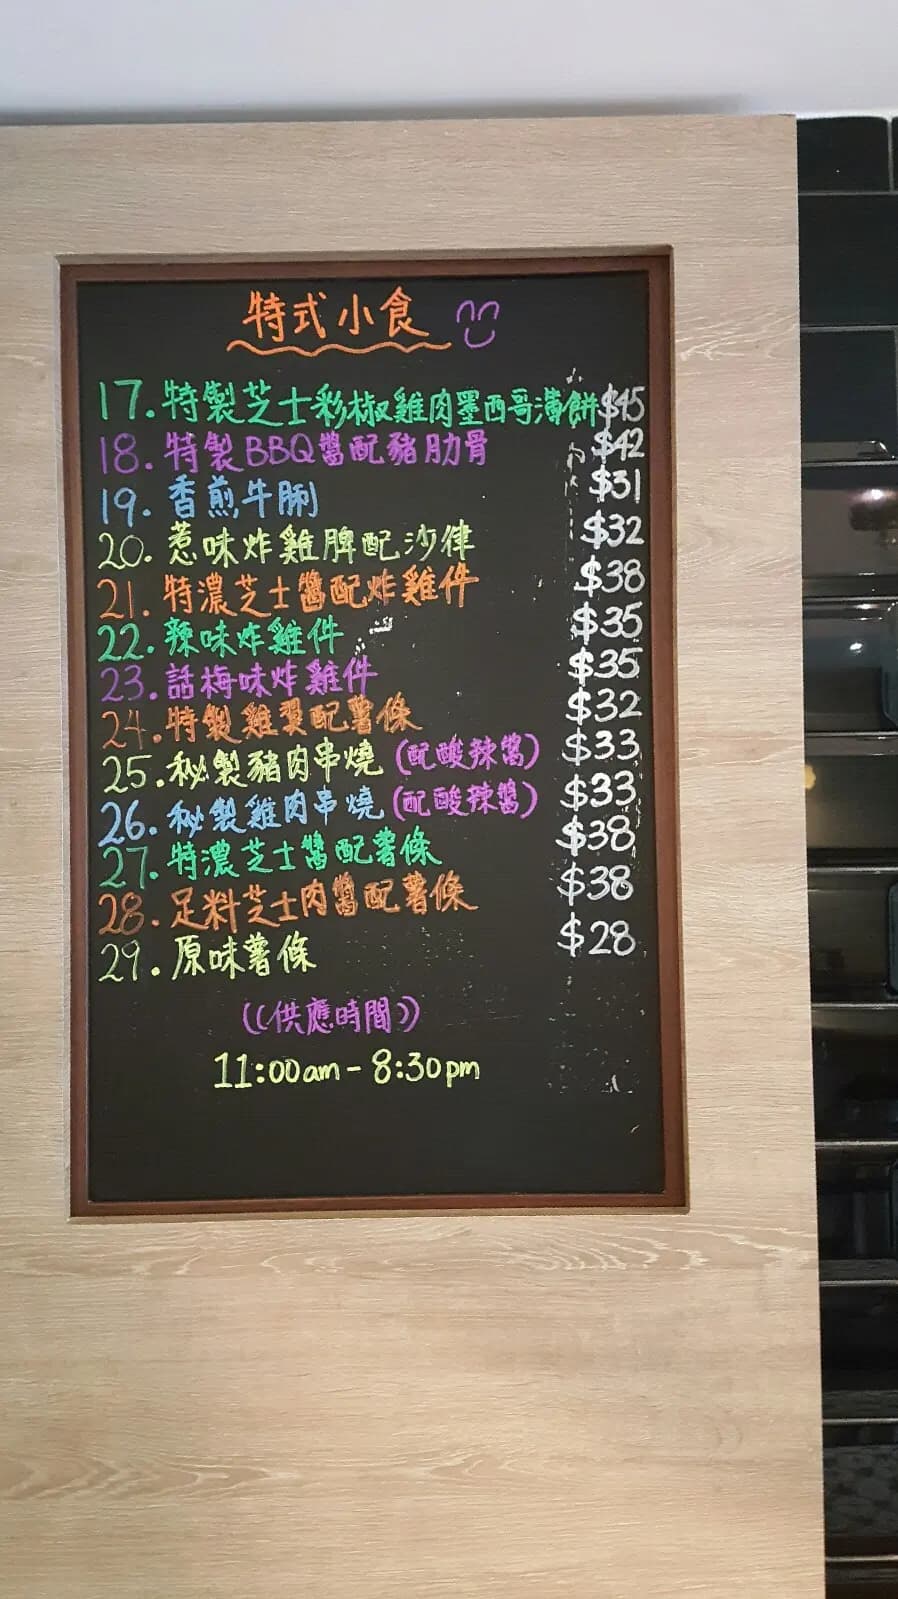 特式小食
17. 特製芝士彩椒雞肉墨西哥薄餅 $45
18. 特製BBQ醬配豬肋骨 $42
19. 香煎牛脷 $31
20. 惹味炸雞脾配沙律 $32
21. 特濃芝士醬配炸雞件 $38
22. 辣味炸雞件 $35
23. 話梅味炸雞件 $35
24. 特製雞翼配薯條 $32
25. 秘製豬肉串燒 (配酸辣醬) $33
26. 秘製雞肉串燒 (配酸辣醬) $33
27. 特濃芝士醬配薯條 $38
28. 足料芝士肉醬配薯條 $38
29. 原味薯條 $28
((供應時間))
11:00am - 8:30pm